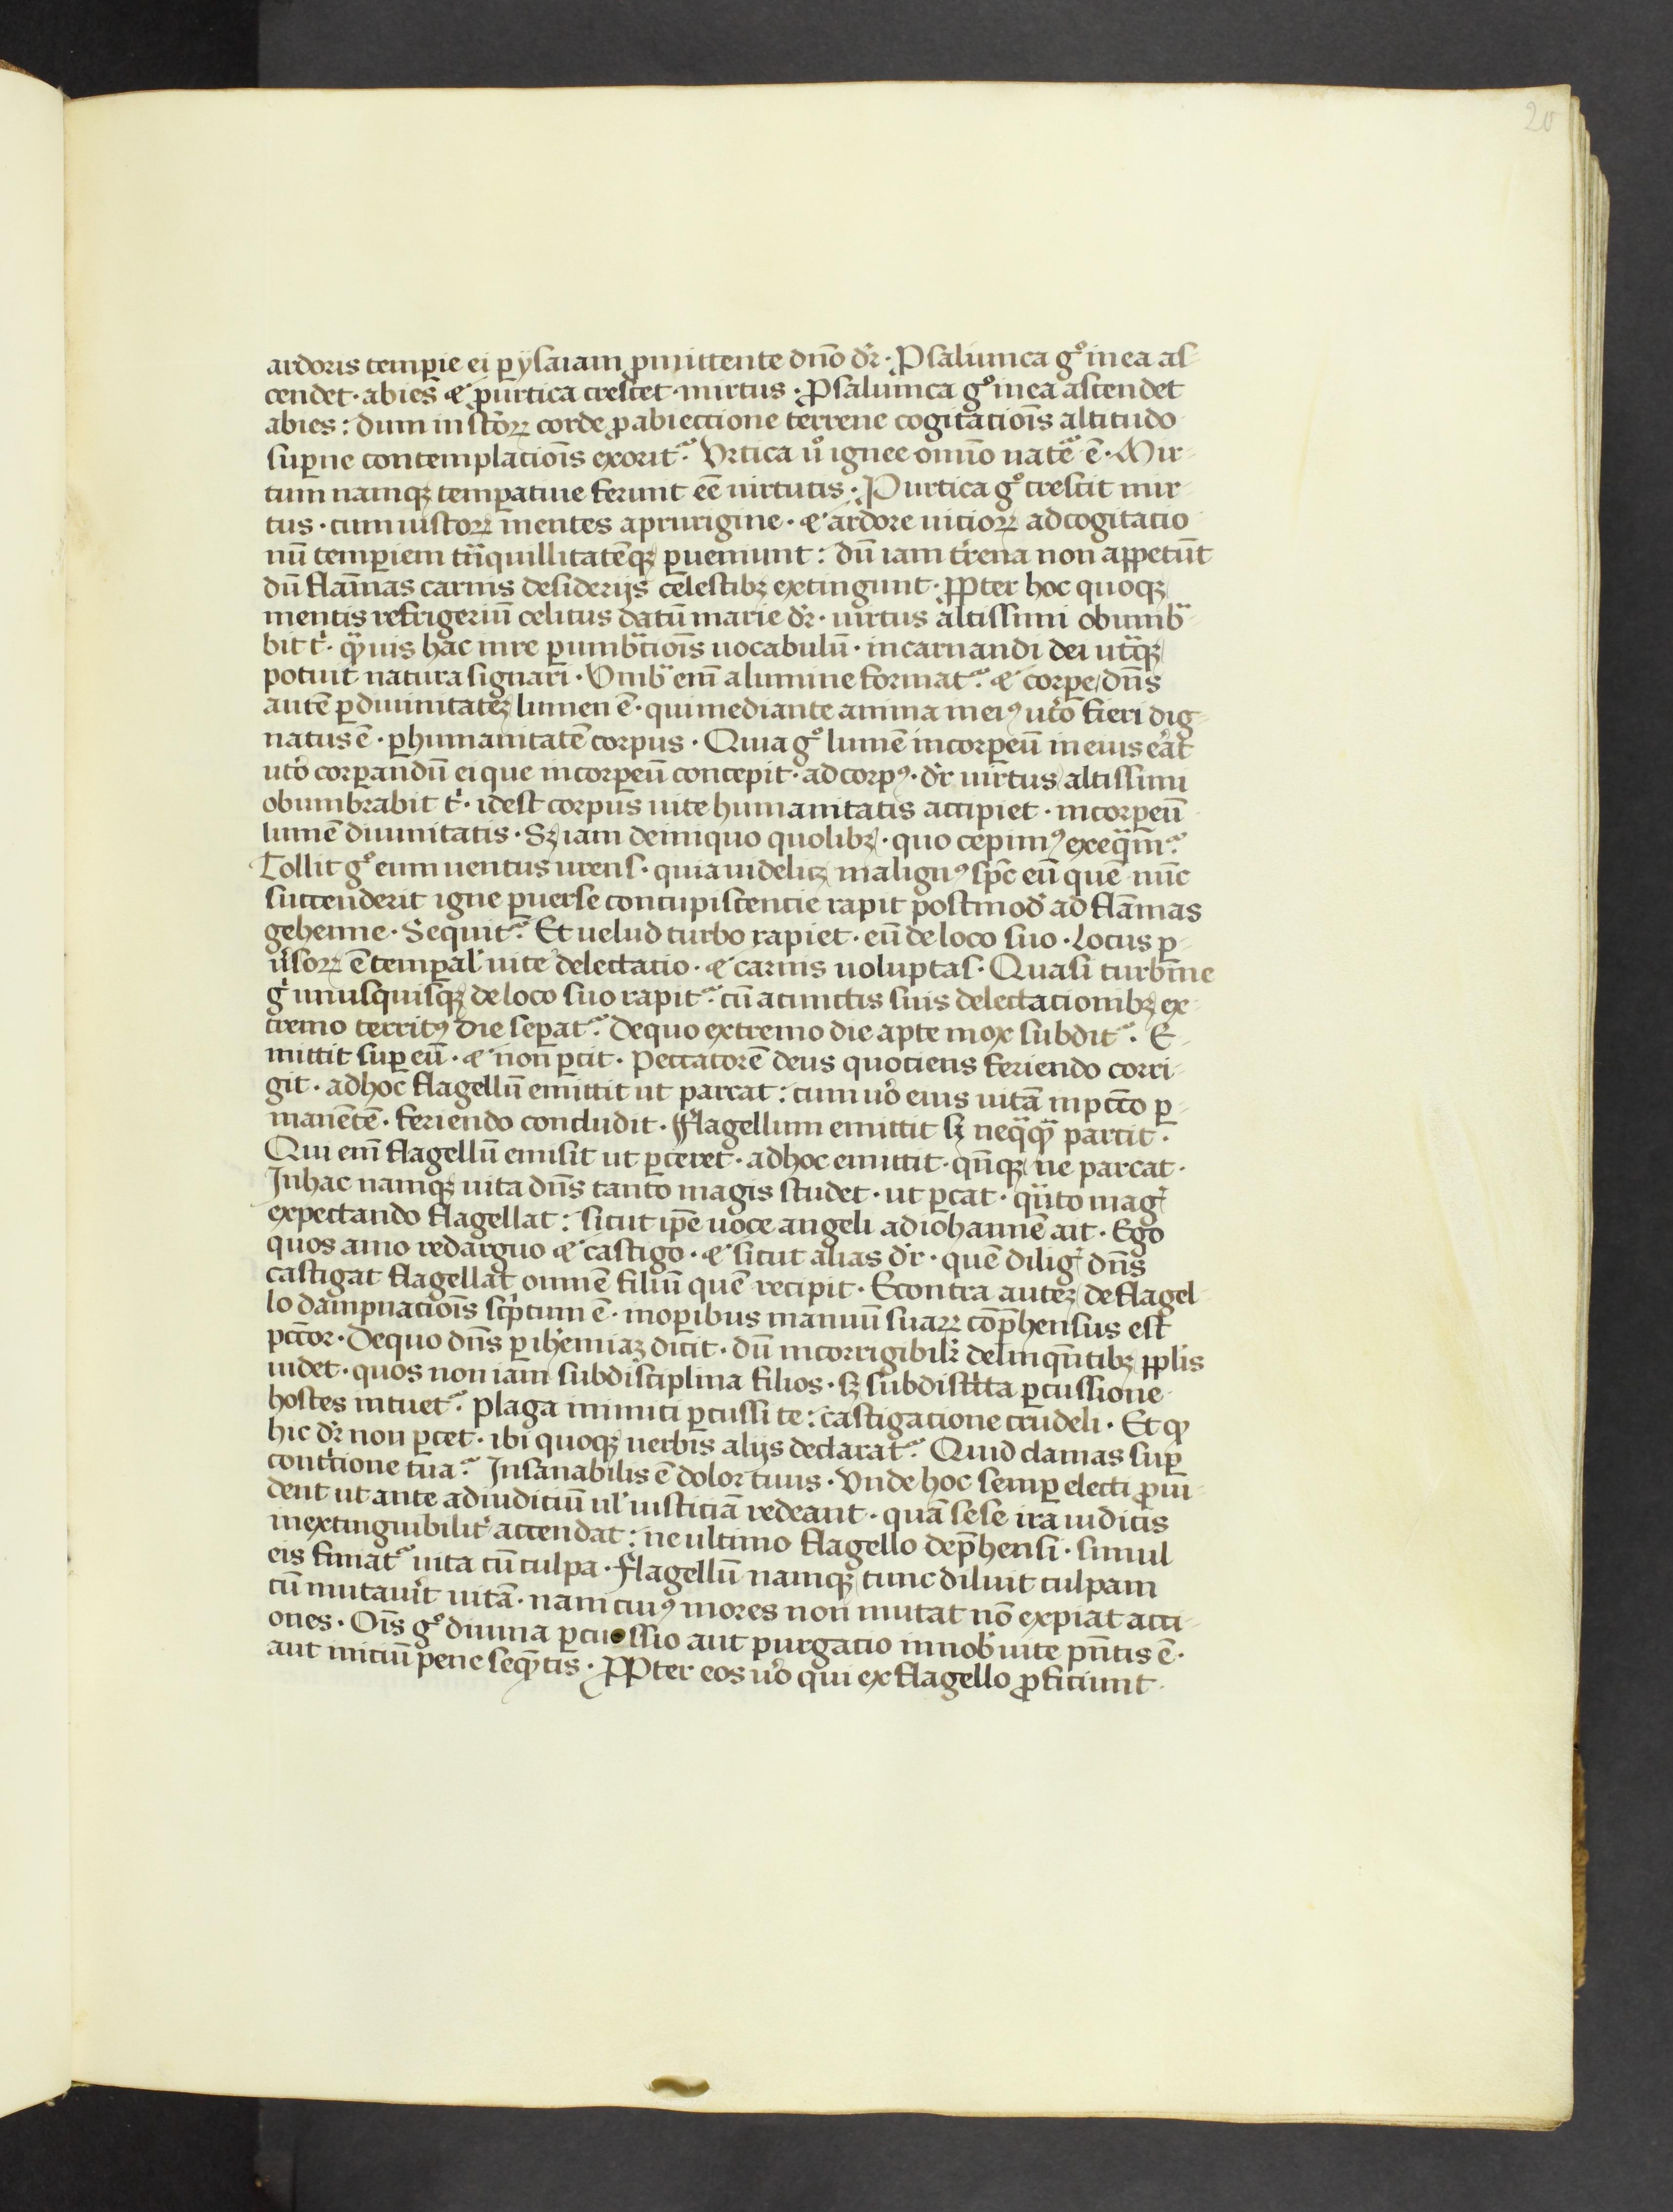 20
ardoris temp̲ie ei p̲ ysaiam p̲mittente dn̄o dr̄ · P saliunca gͦ in ea aſ-
cendet · abies ⁊ p urtica crescet · mirtus · P saliunca gͦ in ea ascendet
abies : dum in sc̄oꝝ corde p̲ abieccione terrene cogitacio̅s altitudo
sup̲ne contemplacio̅s exorit᷑ · Vrtica uͦ ignee om̄io nate᷑ ē · Mir-
tum namqꝫ temp̲atiue ferunt ee̅ uirtutis · P urtica gͦ crescit mir-
tus · cum iustoꝝ mentes a prurigine · ⁊ ardore uicioꝝ ad cogitacio
nū temp̲iem tᷓnquillitatēqꝫ p̲ueniunt : dū iam t̾rena non appetūt
dū flam̄as carnis desiderijs celestibꝫ extingunt · Pp̲ter hoc quoqꝫ
mentis refrigeriū celitus datū marie dr̄ · uirtus altissimi obumbᷓ-
bit t̾ · qᷓuis hac in re p̲ umbᷓcio̅s uocabulū · incarnandi dei utᷓqꝫ
potuit natura signari · Vmbᷓ enī a lumine format᷑ ⁊ corp̲e dn̄s
autē p̲ diuinitateꝫ lumen ē · qui mediante anima in eiꝰ ut̾o fieri dig-
natus ē · p̲ humanitatē corpus · Quia gͦ lumē incorp̲eū in eius erat
ut̾o corp̲andū ei que incorp̲eū concepit · ad corpꝰ · dr̄ uirtus altissimi
obumbrabit t̾ · idest corpus uite humanitatis accipiet · incorp̲eū
lumē diuinitatis · Sꝫ iam de iniquo quolibꝫ · quo cepimꝰ exeqᷓm᷑
Tollit gͦ eum uentus urens · quia uidelicꝫ malignꝰ sp̄c eū quē nūc
succenderit igne p̲uerse concupiscencie rapit postmod̾ ad flam̄as
gehenne · Sequit᷑ Et uelud turbo rapiet · eū de loco suo · Locus p̲-
u̾soꝝ ē temp̲al̾ uite delectacio · ⁊ carnis uoluptas · Quasi turbīne
g̾ unusquisqꝫ de loco suo rapit᷑ cū a cunctis suis delectacionibꝫ ex-
tremo territꝰ die sep̲at᷑ De quo extremo die apte mox subdit᷑ · E-
mittit sup̲ eū · ⁊ non p̲cit · Peccatorē deus quociens feriendo corri-
git · ad hoc flagellū emittit ut parcat : cum u̾o eius uitā in pcc̄o p̲-
manētē · feriendo concludit · Flagellum emittit sꝫ neqᷓqᷓ parcit ·
Qui enī flagellū emisit ut p̲ceret · ad hoc emittit · qn̄qꝫ ne parcat ·
In hac namqꝫ uita dn̄s tanto magis studet · ut p̲cat · qᷓnto mag̾
expectando flagellat : sicut ip̄e uoce angeli ad iohannē ait · Ego
quos amo redarguo ⁊ castigo · ⁊ sicut alias dr̄ · quē dilig̾ dn̄s
castigat flagellat omnē filiū quē recipit · Econtra auteꝫ de flagel-
lo dampnacio̅s sc̾ptum ē · in op̲ibus manuū suaꝝ cōp̄hensus est
pcc̄or · De quo dn̄s p̲ ih̾emiaꝫ dicit · dū incorrigibilr̄ delinqn̄tibꝫ pp̲lis
uidet · quos non iam sub disciplina filios · sꝫ sub dist̾cta p̲cussione
hostes intuet᷑ Plaga inimici p̲cussi te : castigacione crudeli · Et qͥ
hic dr̄ non p̲cet · ibi quoqꝫ uerbis alijs declarat᷑ Quid clamas sup̲
cont̾cione tua᷑ Insanabilis ē dolor tuus · Vnde hoc semp̲ electi p̲ui-
dent ut ante ad iudiciū ul̾ iusticiā redeant · quā sese ira iudicis
inextinguibilit̾ accendat : ne ultimo flagello dep̄hensi · simul
eis finiat᷑ uita cū culpa · Flagellū namqꝫ tunc diluit culpam
cū mutau̾it uitā · nam cuiꝰ mores non mutat nō expiat acci-
ones · Oīs gͦ diuina p̲cussio aut purgacio in nob̾ uite pn̄tis ē ·
aut iniciū pene seqᷓntis · Pp̲ter eos u̾o qui ex flagello p̲ficiunt ·